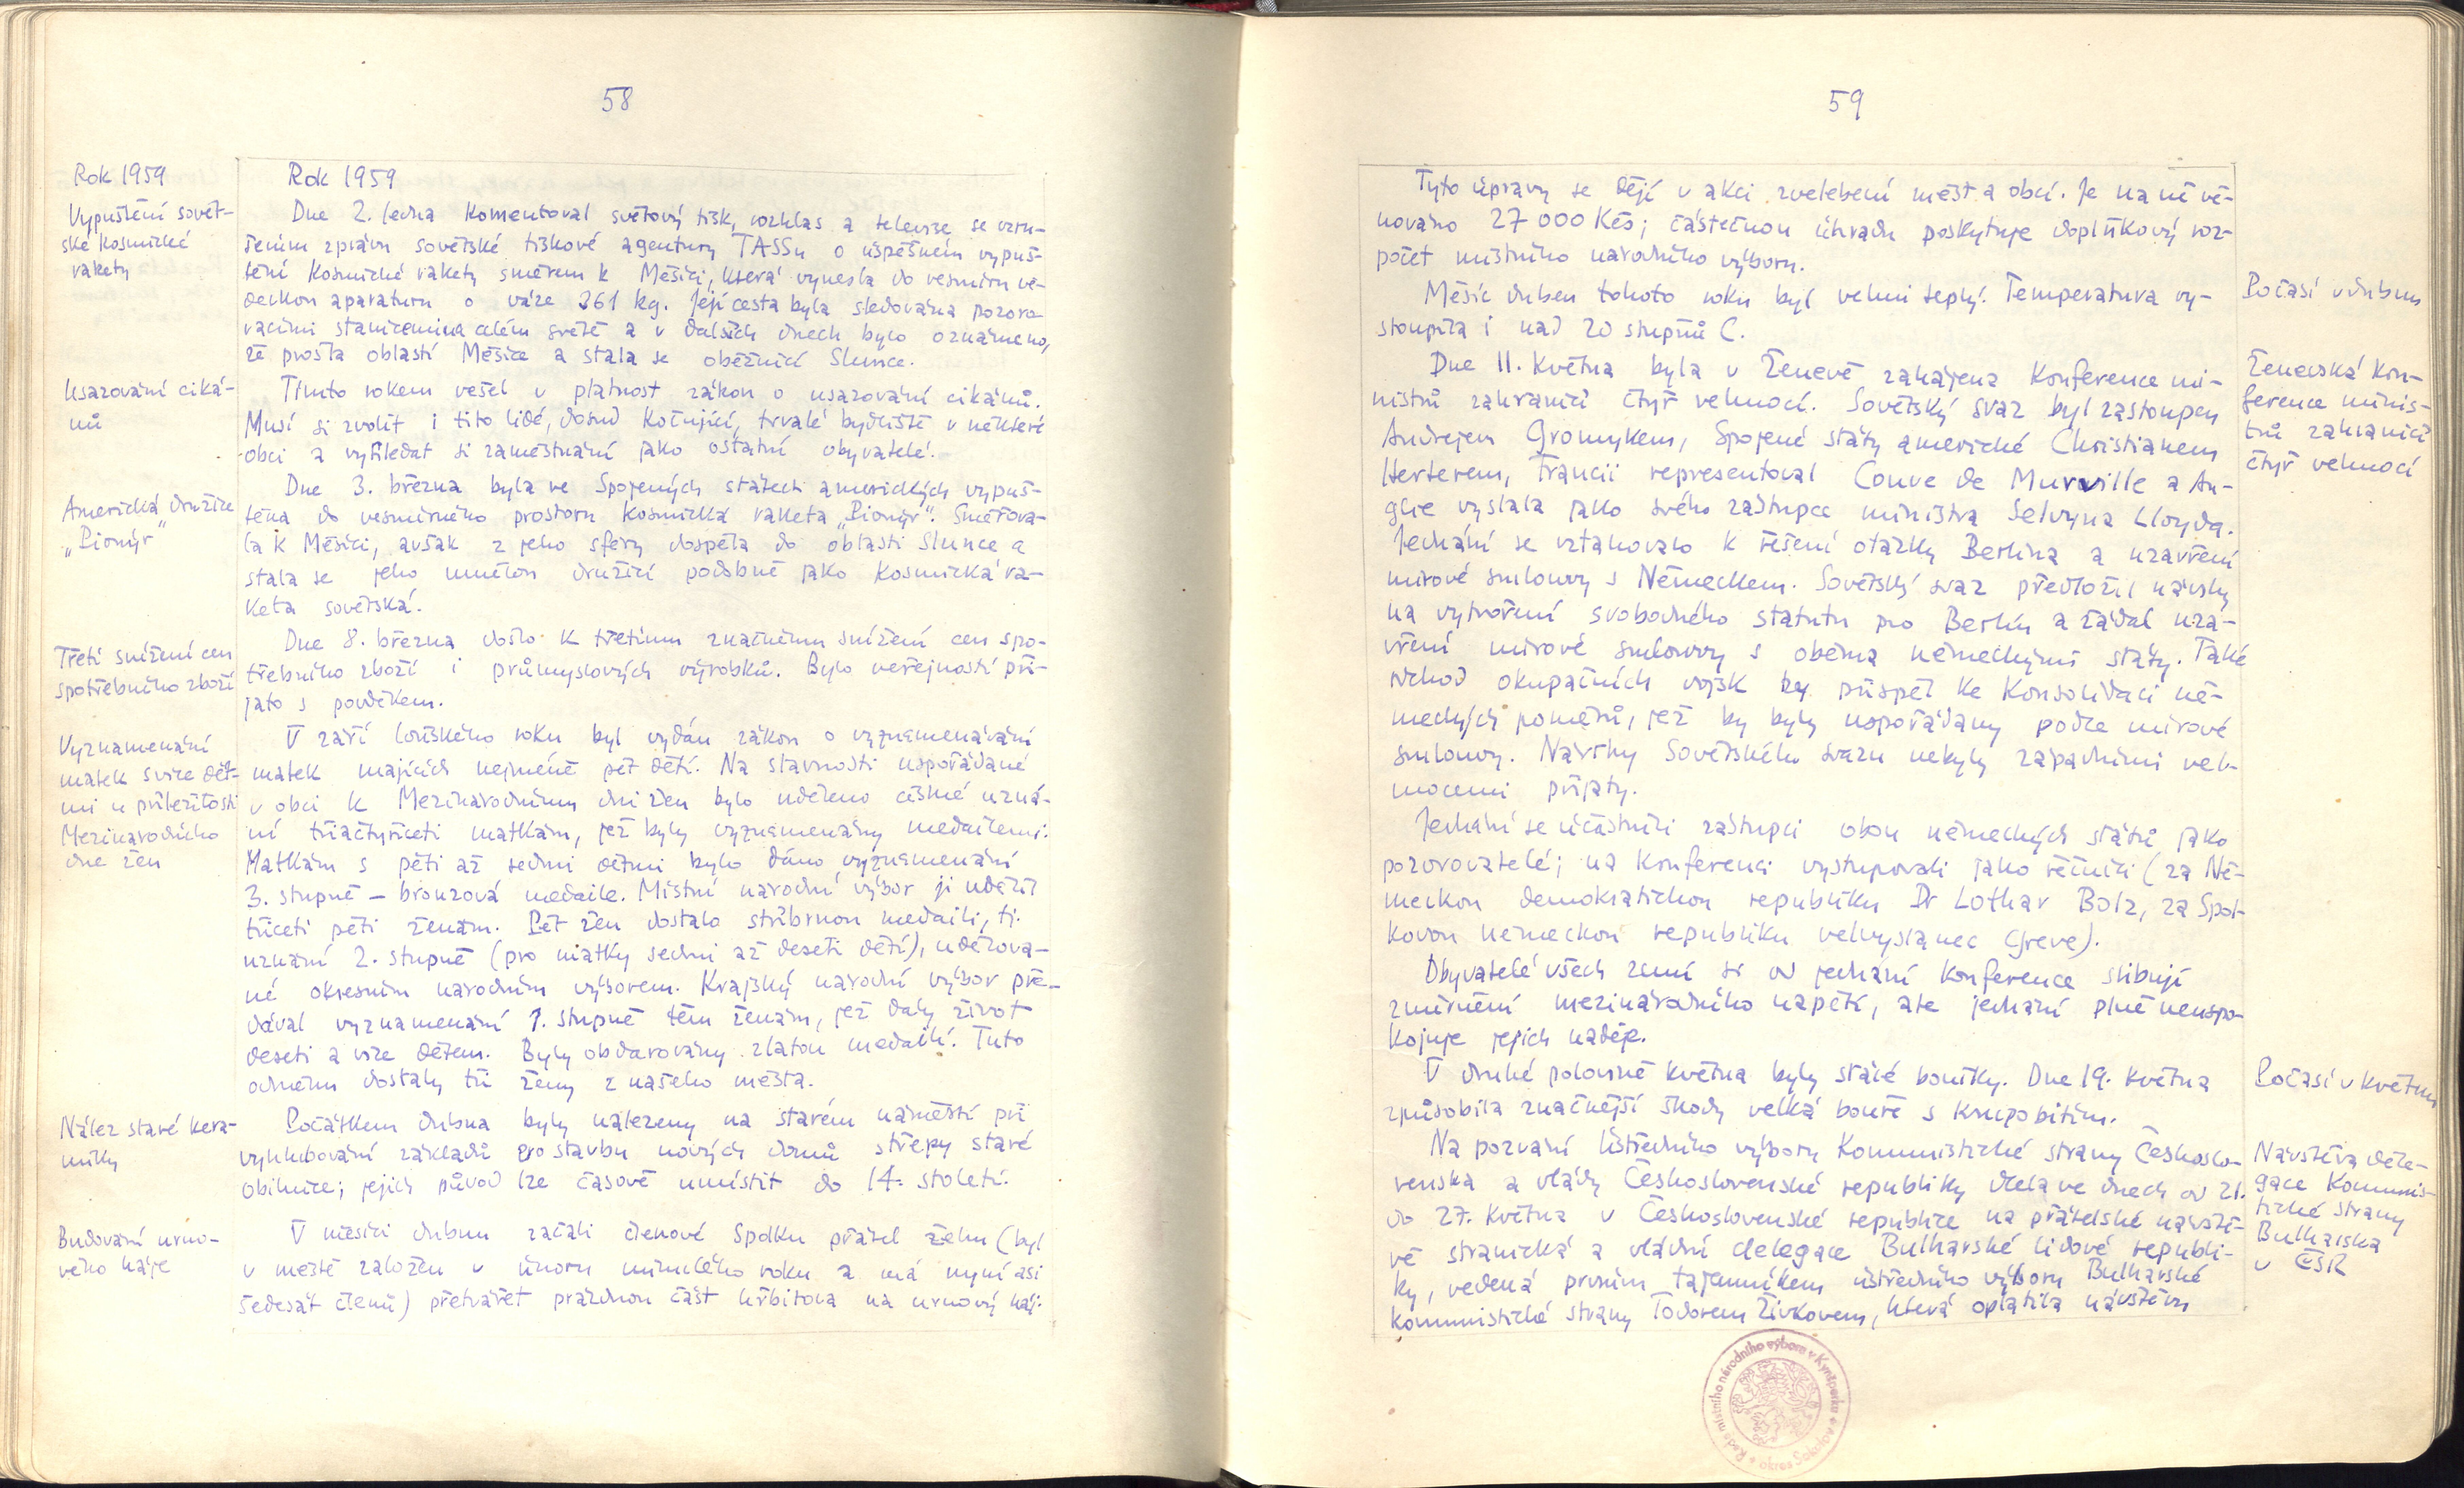 58
Rok 1959
Vypuštění sovět-
ské kosmické
rakety
Rok 1959
Dne 2. ledna komentoval světový tisk, rozhlas a televize se vzru-
šením zprávu sovětské tiskové agentury TASSu o úspěšném vypuš-
tění kosmické rakety směrem k Měsíci, která vynesla do vesmíru vě-
deckou aparaturu o váze 361 kg. Její cesta byla sledována pozoro-
vacími stanicemi na celém světě a v dalších dnech bylo oznámeno,
že prošla oblastí Měsíce a stala se oběžnicí Slunce.
Usazování ciká-
nů
Tímto rokem vešel v platnost zákon o usazování cikánů.
Musí si zvolit i tito lidé, dosud kočující, trvalé bydliště v některé
obci a vyhledat si zaměstnání jako ostatní obyvatelé.
Americká družice
„Pionýr“
Dne 3. března byla ve Spojených státech amerických vypuš-
těna do vesmírného prostoru kosmická raketa „Pionýr“. Směřova-
la k Měsíci, avšak z jeho sféry dospěla do oblasti Slunce a
stala se jeho umělou družicí podobně jako kosmická ra-
keta sovětská.
Třetí snížení cen
spotřebního zboží
Dne 8. března došlo k třetímu značnému snížení cen spo-
třebního zboží i průmyslových výrobků. Bylo veřejností při-
jato s povděkem.
Vyznamenání
matek s více dět-
mi u příležitosti
Mezinárodního
dne žen
V září loňského roku byl vydán zákon o vyznamenávání
matek majících nejméně pět dětí. Na slavnosti uspořádané
v obci k Mezinárodnímu dni žen bylo uděleno čestné uzná-
ní třiačtyřiceti matkám, jež byly vyznamenány medailemi.
Matkám s pěti až sedmi dětmi bylo dáno vyznamenání
3. stupně – bronzová medaile. Místní národní výbor ji udělil
třiceti pěti ženám. Pět žen dostalo stříbrnou medaili, tj.
uznání 2. stupně (pro matky sedmi až deseti dětí), udělova-
né okresním národním výborem. Krajský národní výbor pře-
dával vyznamenání 1. stupně těm ženám, jež daly život
deseti a více dětem. Byly obdarovány zlatou medailí. Tuto
odměnu dostaly tři ženy z našeho města.
Nález staré kera-
miky
Počátkem dubna byly nalezeny na starém náměstí při
vyhlubování základů pro stavbu nových domů střepy staré
obilnice; jejich původ lze časově umístit do 14. století.
Budování urno-
vého háje
V měsíci dubnu začali členové Spolku přátel žehu (byl
v městě založen v únoru minulého roku a má nyní asi
šedesát členů) přetvářet prázdnou část hřbitova na urnový háj.
59
Tyto úpravy se dějí v akci zvelebení měst a obcí. Je na ně vě-
nováno 27 000 Kčs; částečnou úhradu poskytuje doplňkový roz-
počet místního národního výboru.
Počasí v dubnu
Měsíc duben tohoto roku byl velmi teplý. Temperatura vy-
stoupila i nad 20 stupňů C.
Ženevská kon-
ference minis-
trů zahraničí
čtyř velmocí
Dne 11. května byla v Ženevě zahájena konference mi-
nistrů zahraničí čtyř velmocí. Sovětský svaz byl zastoupen
Andrejem Gromykem, Spojené státy americké Christianem
Herterem, Francii representoval Couve de Murville a An-
glie vyslala jako svého zástupce ministra Selvyna Lloyda.
Jednání se vztahovalo k řešení otázky Berlína a uzavření
mírové smlouvy s Německem. Sovětský svaz předložil návrhy
na vytvoření svobodného statutu pro Berlín a žádal uza-
vření mírové smlouvy s oběma německými státy. Také
odchod okupačních vojsk by přispěl ke konsolidaci ně-
meckých poměrů, jež by byly uspořádány podle mírové
smlouvy. Návrhy Sovětského svazu nebyly západními vel-
mocemi přijaty.
Jednání se účastnili zástupci obou německých států jako
pozorovatelé; na konferenci vystupovali jako řečníci (za Ně-
meckou demokratickou republiku Dr Lothar Bolz, za Spol-
kovou německou republiku velvyslanec Greve).
Obyvatelé všech zemí si od jednání konference slibují
zmírnění mezinárodního napětí, ale jednání plně neuspo-
kojuje jejich naděje.
Počasí v květnu
V druhé polovině května byly stálé bouřky. Dne 19. května
způsobila značnější škody velká bouře s krupobitím.
Návštěva dele-
gace Komunis-
tické strany
Bulharska
v ČSR
Na pozvání Ústředního výboru Komunistické strany Českoslo-
venska a vlády Československé republiky dlela ve dnech od 21.
do 27. května v Československé republice na přátelské návště-
vě stranická a vládní delegace Bulharské lidové republi-
ky, vedená prvním tajemníkem ústředního výboru Bulharské
komunistické strany Todorem Živkovem, která oplatila návštěvu
Rada místního národního výboru v Kynšperku
okres Sokolov